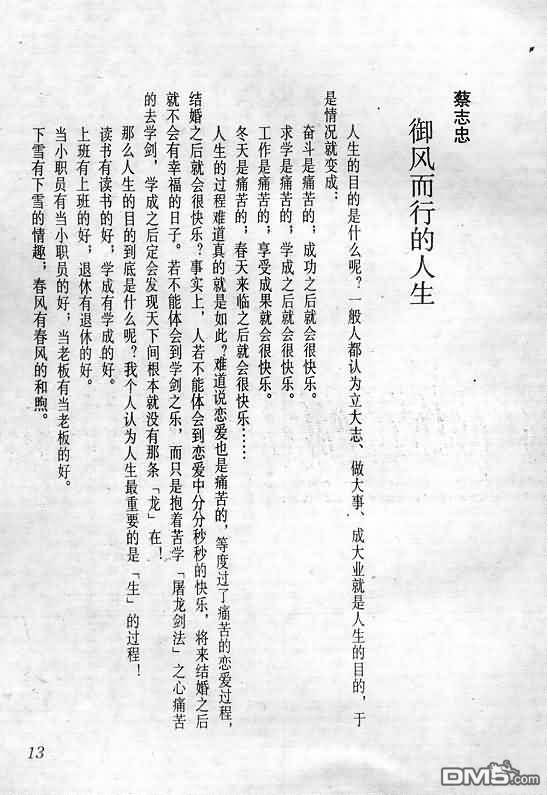 蔡志忠
御风而行的人生
人生的目的是什么呢？一般人都认为立大志、做大事、成大业就是人生的目的，于
是情况就变成：
奋斗是痛苦的；成功之后就会很快乐。
求学是痛苦的；学成之后就会很快乐。
工作是痛苦的；享受成果就会很快乐。
冬天是痛苦的；春天来临之后就会很快乐……
人生的过程难道真的就是如此？难道说恋爱也是痛苦的，等度过了痛苦的恋爱过程，
结婚之后就会很快乐？事实上，人若不能体会到恋爱中分分秒秒的快乐，将来结婚之后
就不会有幸福的日子。若不能体会到学剑之乐，而只是抱着苦学「屠龙剑法」之心痛苦
的去学剑，学成之后定会发现天下间根本就没有那条「龙」在！
那么人生的目的到底是什么呢？我个人认为人生最重要的是「生」的过程！
读书有读书的好，学成有学成的好。
上班有上班的好；退休有退休的好。
当小职员有当小职员的好；当老板有当老板的好。
下雪有下雪的情趣；春风有春风的和煦。
13
DM5.com